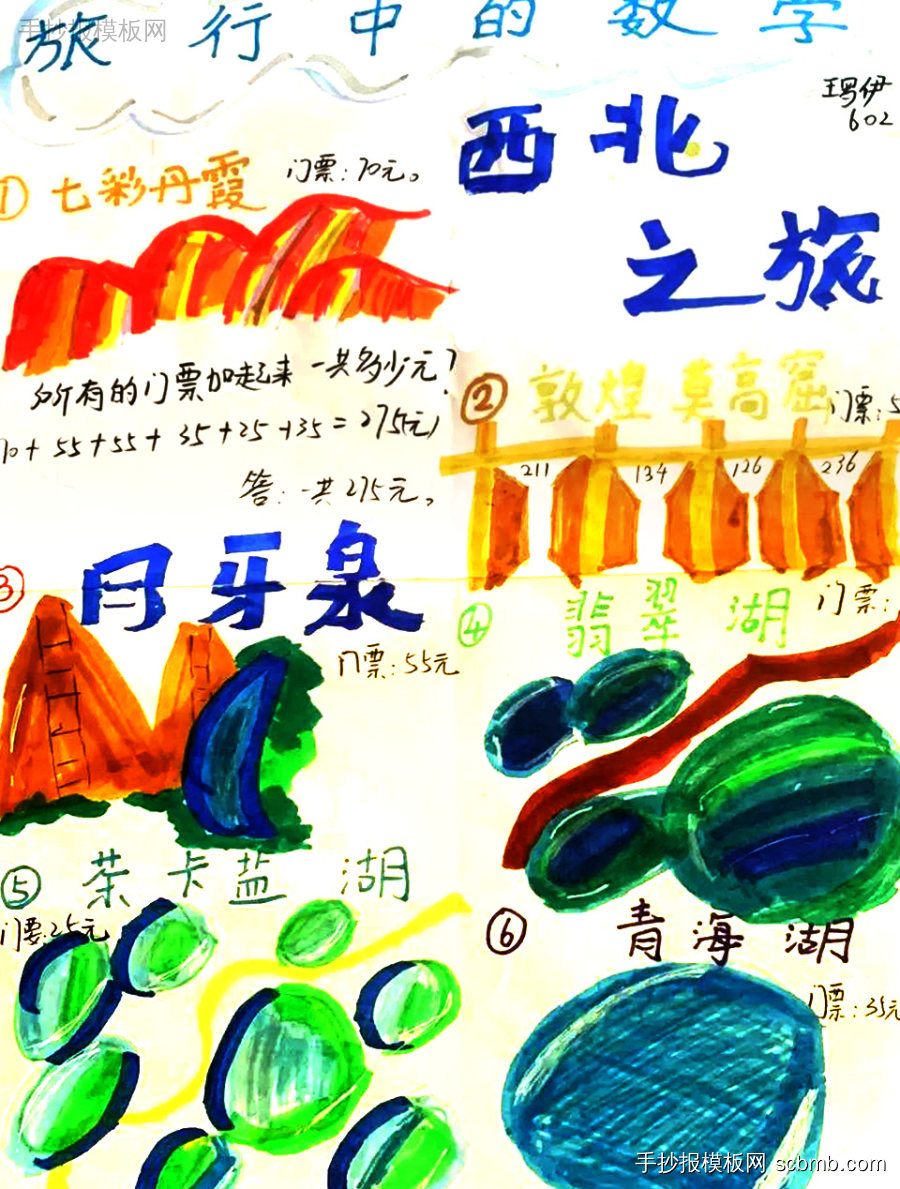 手抄报模板网
旅行中的数学
玛伊
602
西北
之旅
① 七彩丹霞 门票:70元。
所有的门票加起来一共多少元?
70+55+55+35+25+35=275(元)
答:一共275元。
② 敦煌莫高窟 门票:5
211 134 126 236
③ 月牙泉
门票:55元
④ 翡翠湖 门票:
⑤ 茶卡盐湖
门票:25元
⑥ 青海湖
门票:35元
手抄报模板网 scbmb.com